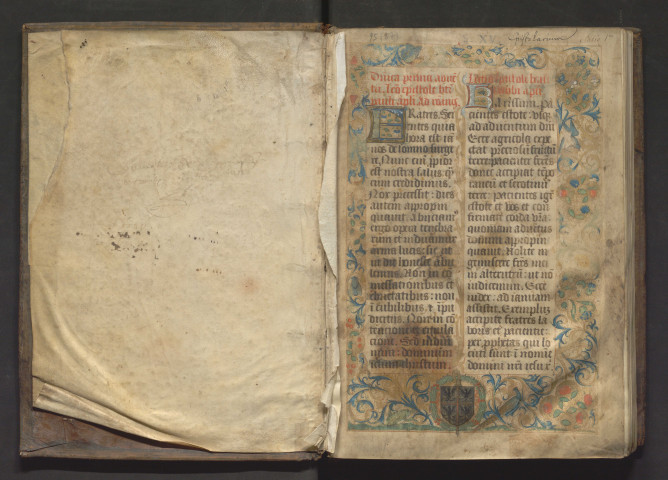 Epistolarium
Dnica prima advẽ
tus. Lco epistole bti
pauli apli Ad romãos
Fratres. Sci
entes quia
hora est iã
nos de somno surge
re. Nunc eni ̃ ppior
est nostra salus q̃
cum credidimus.
Nox precessit: dies
autem appropin
quavit. Abiciam9
ergo opera tenebra
rum et induamur
arma lucis: sic ut
ut die honeste ambu
lemus. Non in co
messationibus et
ebrietatibus: non
ĩ cubilibus ⁊ ĩpu
diciciis. Non in cõ
tentione et emula
tione. Sed indui
mini: dominum
iesum christum.
iacobi apli
Karissimi. pa
cientes estote: usq̃
ad adventum dñi
Ecce agricola expe
ctat preciosũ fructũ
terre: pacienter ferẽs
donec accipiat tẽpo
raneũ et serotinũ
terre. pacientes igr̃
estote et vos et con
firmate corda vrã
quoniam adventus
domini appropin
quavit. Nolite in
gemiscere frẽs mei
in alterutrũ: ut nõ
iudicemini. Ecce
iudex: ad ianuam
assistit. Exemplũ
accipite fratres la
boris et paciencie:
per prophetas qui lo
cuti sunt ĩ nomie
domini nrĩ iesu x